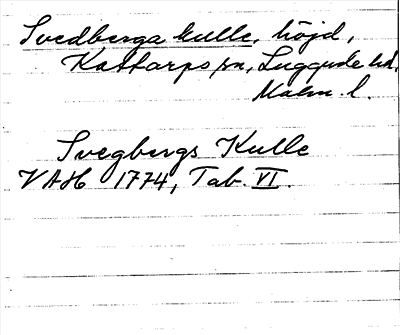 Svedberga kulle, höjd,
Kattarps sn, Luggude hd.
Malm. l.
Svegbergs Kulle
VAH 1774, Tab. VI.